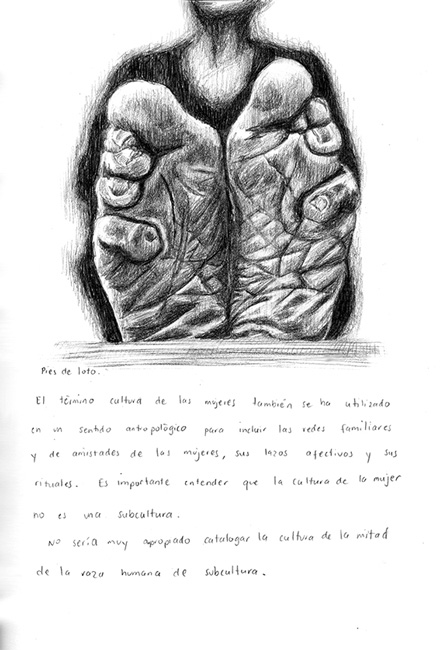 Pies de loto.
El término cultura de las mujeres también se ha utilizado
en un sentido antropológico para incluir las redes familiares
y de amistades de las mujeres, sus lazos afectivos y sus
rituales. Es importante entender que la cultura de la mujer
no es una subcultura.
No sería muy apropiado catalogar la cultura de la mitad
de la raza humana de subcultura.